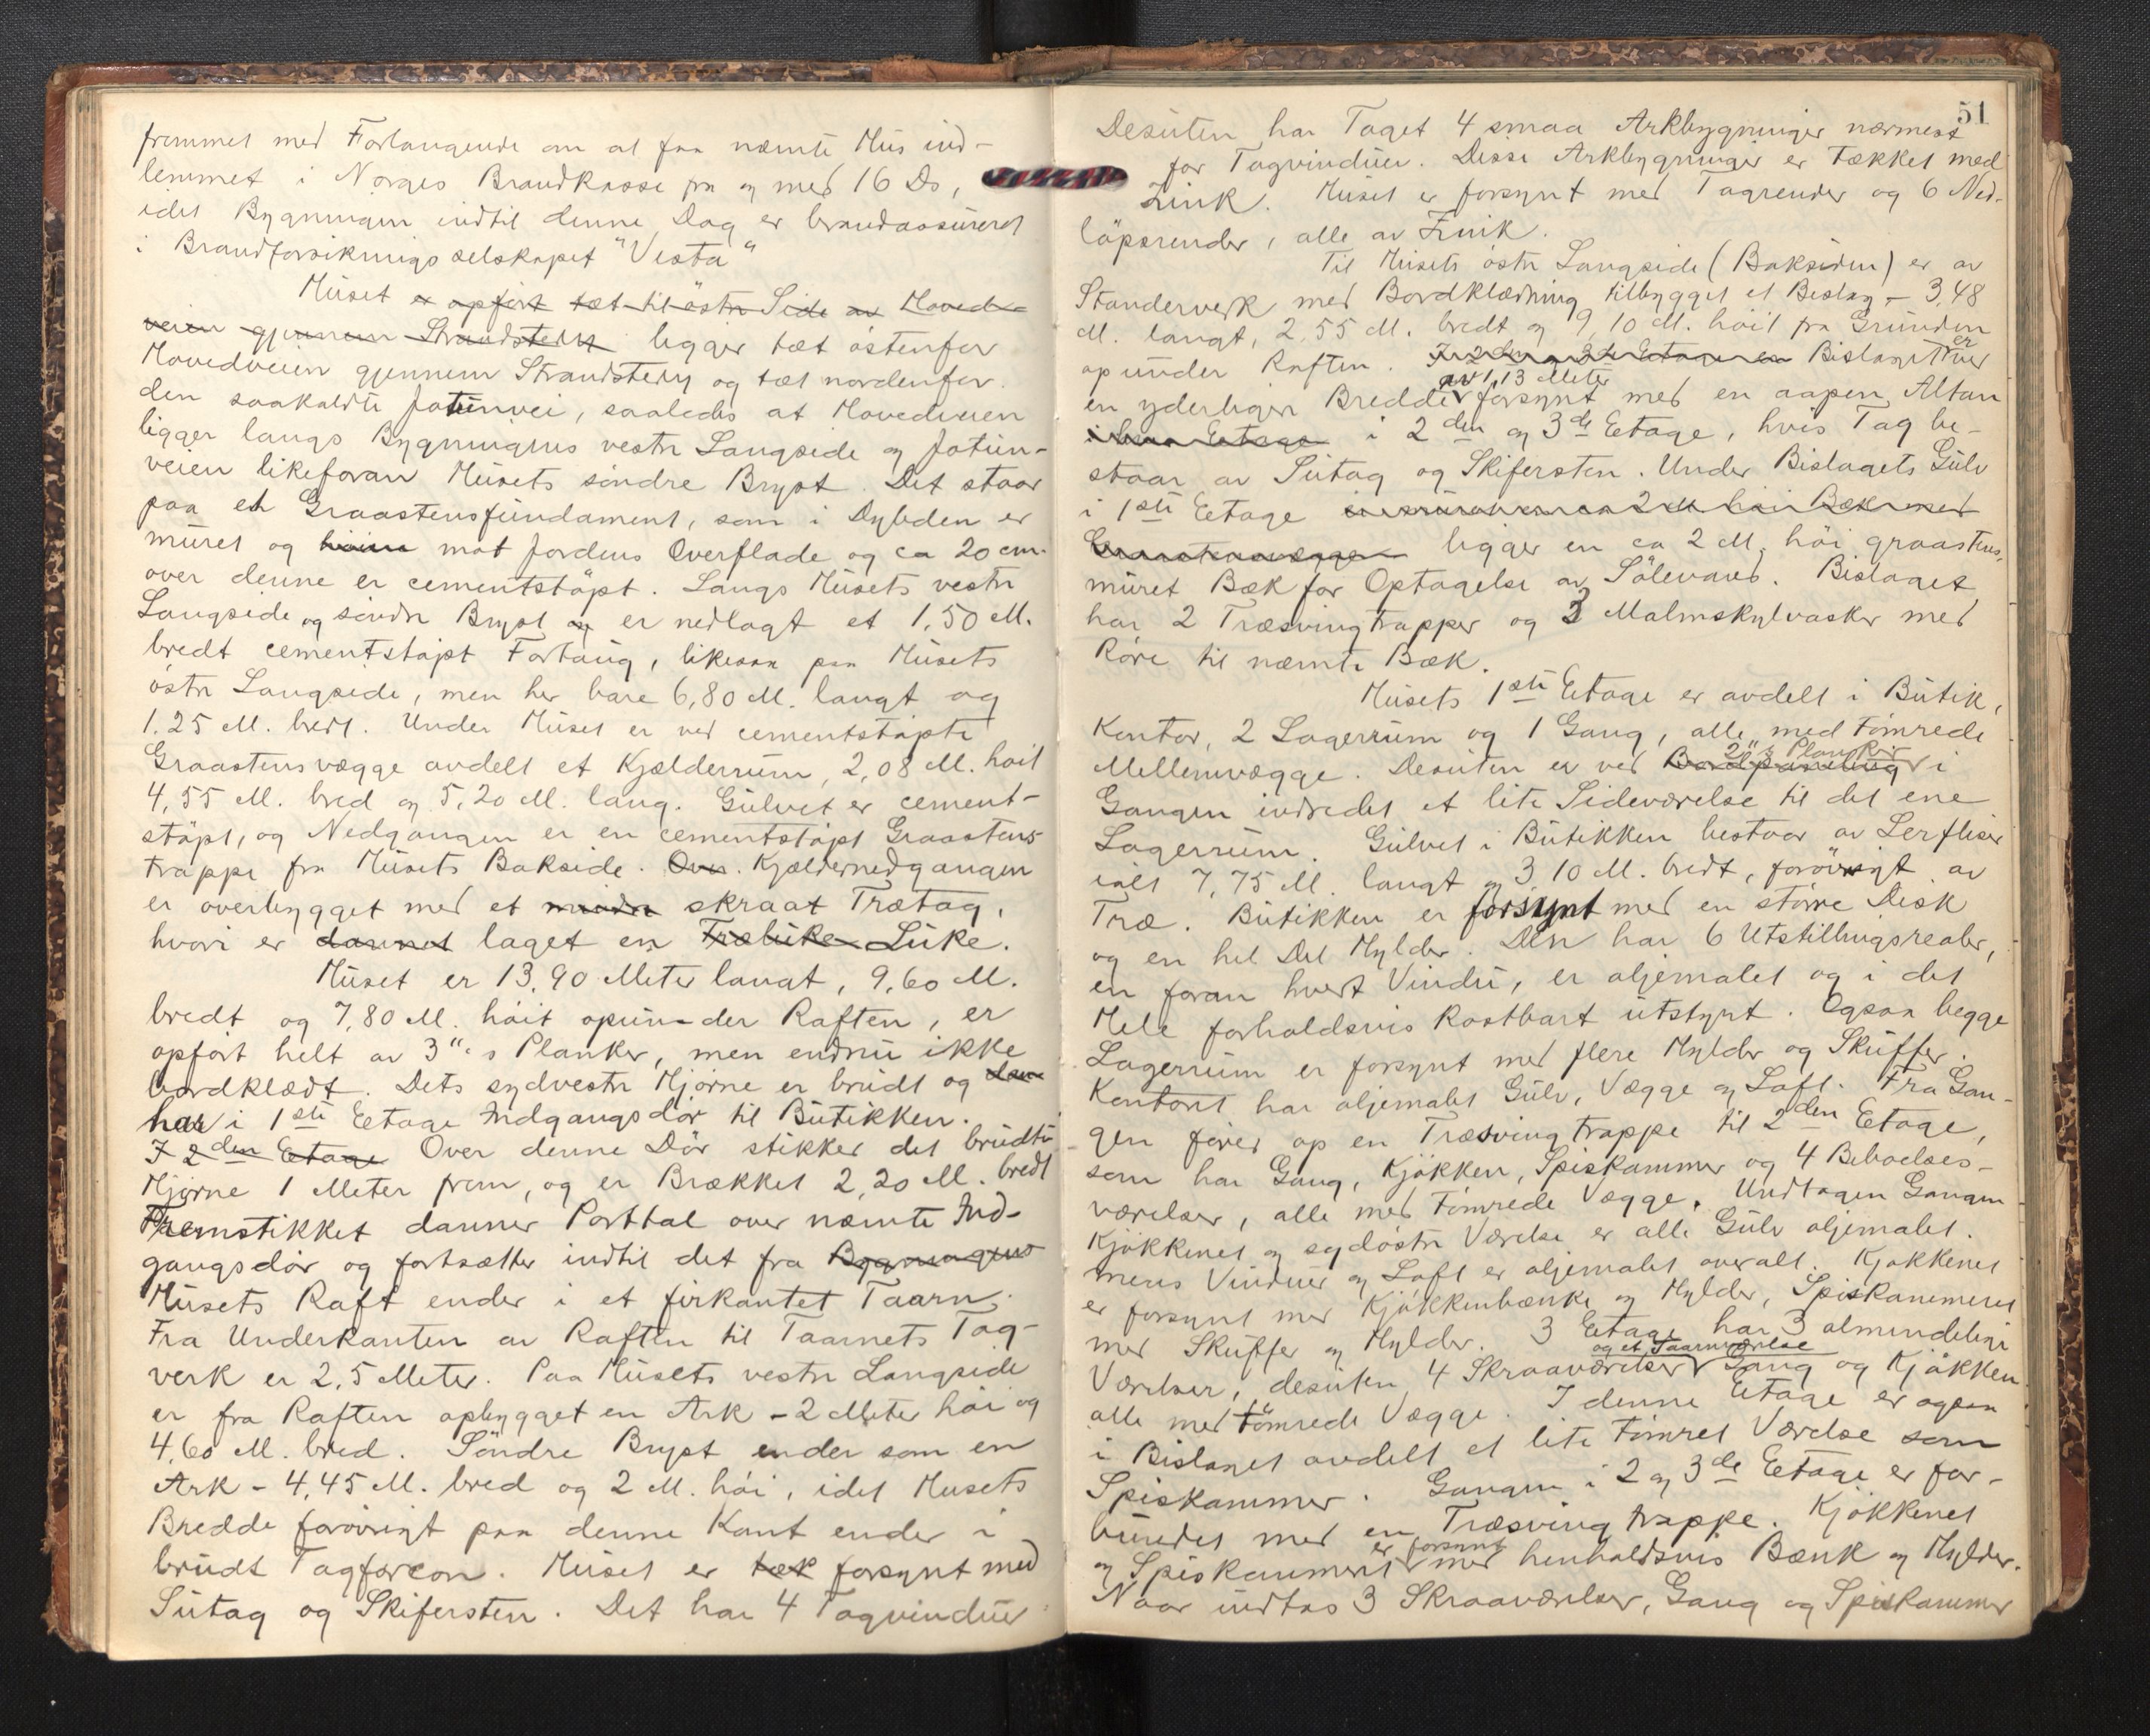 fremmet med Forlangende om at faa nævnte Hus ind-
lemmet i Norges Brandkasse fra og med 16 Ds,
idet Bygningen indtil denne Dag er brandassureret
i Brandforsikringsselskapet "Vesta"
Huset er opført tæt til østre Side av Hoved-
veien gjennem Strandstedet ligger tæt østenfor
Hovedveien gjennem Strandstedet og tæt nordenfor
den saakaldte Jotunvei, saaledes at Hovedveien
ligger langs Bygningens vestre Langside og Jotun-
veien likeforan Husets søndre Bryst. Det staar
paa et Graastensfundament, som i Dybden er
muret og mot Jordens Overflade og ca 20 cm.
over denne er cementstøpt. Langs Husets vestre
Langside og søndre Bryst er nedlagt et 1.50 M.
bredt cementstøpt Fortaug, likesaa paa Husets
østre Langside, men her bare 6,80 M. langt og
1.25 M. bredt. Under Huset er ved cementstøpte
Graastensvægge avdelt et Kjælderrum, 2,08 M. høit
4,55 M. bred og 5,20 M. lang. Gulvet er cement-
støpt, og Nedgangen er en cementstøpt Graastens-
trappe fra Husets Bakside. Over Kjældernedgangen
er overbygget med et mindre skraat Trætag,
hvori er dannet laget en Træluke Luke.
Huset er 13,90 Meter langt, 9,60 M.
bredt og 7,80 M. høit opunder Raften, er
opført helt av 3"s Planker, men endnu ikke
bordklædt. Dets sydvestre Hjørne er brudt og
har i 1ste Etage Indgangsdør til Butikken.
I 2den Etage Over denne Dør stikker det brudte
Hjørne 1 Meter frem, og er Brækket 2,20 M. bredt
Fremstikket danner Porttal over nævnte Ind-
gangsdør og fortsætter indtil det fra Bygningens
Husets Raft ender i et firkantet Taarn.
Fra Underkanten av Raften til Taarnets Tag-
verk er 2,5 Meter. Paa Husets vestre Langside
er fra Raften opbygget en Ark - 2 Meter høi og
4,60 M. bred. Søndre Bryst ender som en
Ark - 4,45 M. bred og 2 M. høi, idet Husets
Bredde forøvrigt paa denne Kant ender i
brudt Tagfaçon. Huset er tæk forsynt med
Sutag og Skifersten. Det har 4 Tagvinduer
51
Desuten har Taget 4 smaa Arkbygninger nærmest
for Tagvinduer. Disse Arkbygninger er tækket med
Zink. Huset er forsynt med Tagrender og 6 Ned-
løpsrender, alle av Zink.
Til Husets østre Langside (Baksiden) er av
Standerverk med Bordklædning tilbygget et Bislag - 3,48
M. langt, 2,55 M. bredt og 9,10 M. høit fra Grunden
op under Raften. I 2den og 3de Etage er Bislaget er
av 1,13 Meter
en yderligere Bredde forsynt med en aapen Altan
Etage i 2den og 3de Etage, hvis Tag be-
staar av Sutag og Skifersten. Under Bislagets Gulv
i 1ste Etage 2 M høi Bæk med
ligger en ca 2 M. høi graastens-
muret Bæk for Optagelse av Sølevand. Bislaget
har 2 Træsvingtrapper og 3 Malmskylvasker med
Røre til nævnte Bæk.
Husets 1ste Etage er avdelt i Butik,
Kontor, 2 Lagerrum og 1 Gang, alle med tømrede
2"s Planker
Mellemvægge. Desuten er ved Bordpaneling i
Gangen indredet et lite Sideværelse til det ene
Lagerrum. Gulvet i Butikken bestaar av Lerfliser
ialt 7,75 M. langt og 3 10 M. bredt, forøvrigt av
Træ. Butikken er forsynt med en større Disk
og en hel Del Hylder. Den har 6 Utstillingsrealer,
en foran hvert Vindu, er oljemalet og i det
Hele forholdsvis kostbart utstyrt. Ogsaa begge
Lagerrum er forsynt med flere Hylder og Skuffer.
Kontoret har oljemalet Gulv, Vægge og Loft. Fra Gan-
gen fører op en Træsvingtrappe til 2den Etage,
som har Gang, Kjøkken, Spiskammer og 4 Beboelses-
værelser, alle med tømrede Vægge. Undtagen Gangen
Kjøkkenet og sydøstre Værelse er alle Gulv oljemalet.
mens Vinduer og Loft er oljemalet overalt. Kjøkkenet
er forsynt med Kjøkkenbænke og Hylder, Spiskammeret
med Skuffer og Hylder. 3 Etage har 3 almindelige
og et Taarnværelse
Værelser, desuten 4 Skraaværelser Gang og Kjøkken
alle med tømrede Vægge. I denne Etage er ogsaa
i Bislaget avdelt et lite tømret Værelse som
Spiskammer. Gangen i 2 og 3de Etage er for-
bundet med en Træsvingtrappe. Kjøkkenet
er forsynt
og Spiskammeret med henholdsvis Bænk og Hylder.
Naar undtas 3 Skraaværelser, Gang og Spiskammer